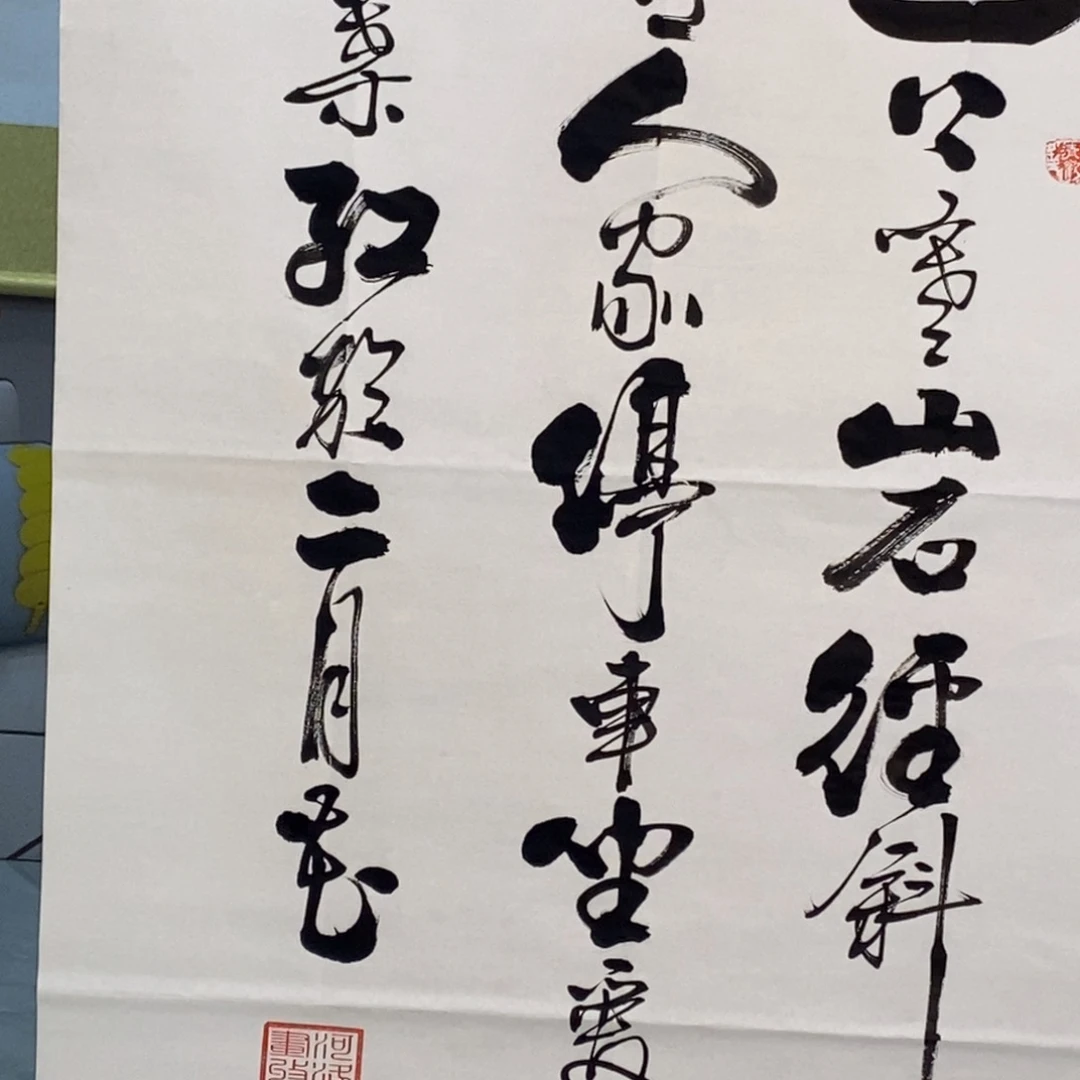 上寒山石徑斜
人家停車坐愛
葉紅於二月花